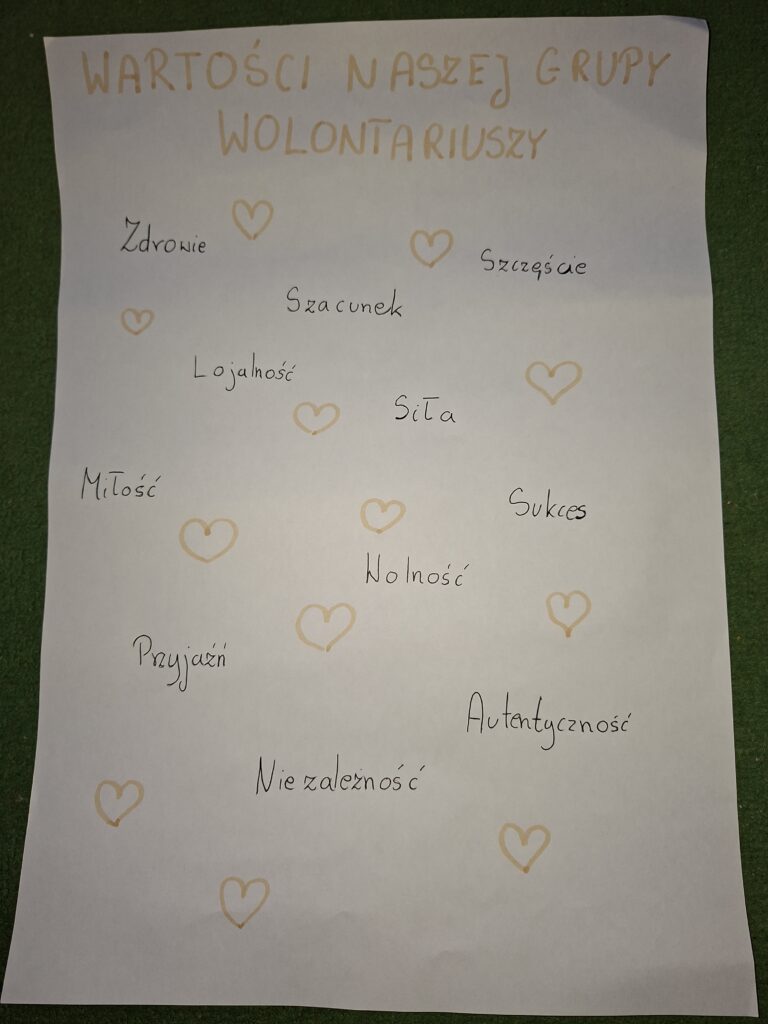 WARTOŚCI NASZEJ GRUPY
WOLONTARIUSZY
Zdrowie
Szczęście
Szacunek
Lojalność
Siła
Miłość
Sukces
Wolność
Przyjaźń
Autentyczność
Niezależność